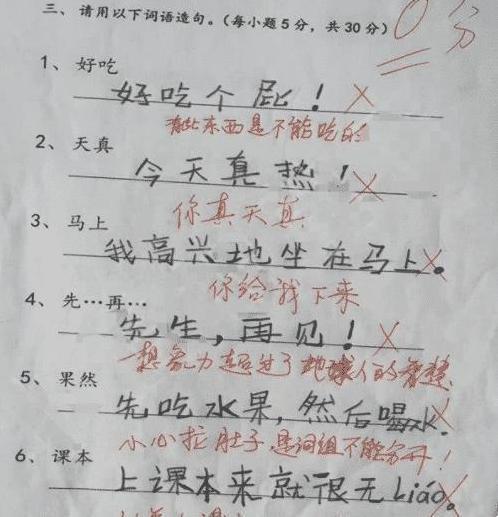 三、请用以下词语造句。（每小题5分，共30分）
0分
1、好吃
好吃个屁！
有些东西是不能吃的
2、天真
今天真热！
你真天真
3、马上
我高兴地坐在马上。
你给我下来
4、先…再…
先生，再见！
想象力超过了地球人的智慧
5、果然
先吃水果，然后喝水.
小心拉肚子 是词组不能分开！
6、课本
上课本来就很无Liáo。